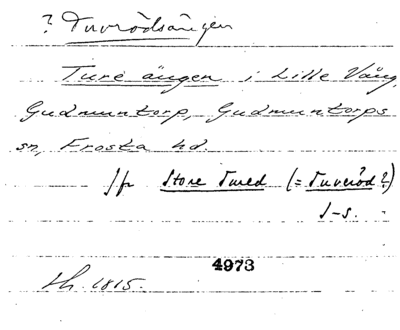 ? Tuvrödsängen
Ture ängen i Lille Väng,
Gudmuntorp, Gudmuntorps
sn, Frosta hd.
Jfr Store Tured (= Tuveröd?)
s-s.
4973
Lh. 1815.